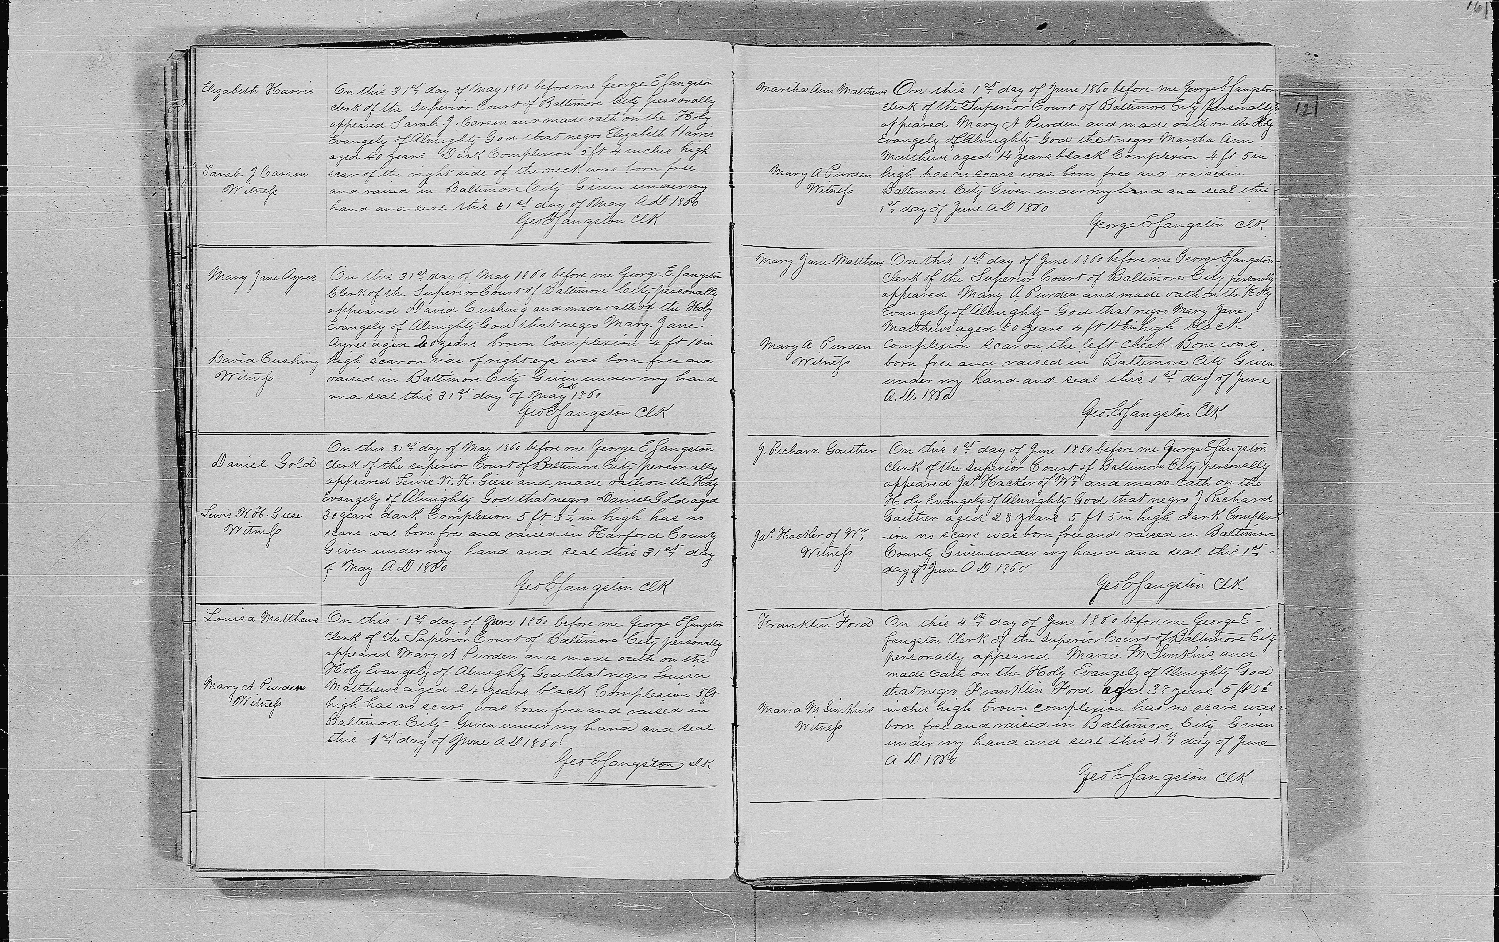 161
Elizabeth Harris
On this 31st day of May 1860 before me George E Sangston
Clerk of the Superior Court of Baltimore City personally
appeared Sarah J. Carren and made oath on the Holy
Evangely of Almighty God that negro Elizabeth Harris
aged 40 years Dark Complexion 5 ft 4 inches high
scar of the right side of the neck was born free
and raised in Baltimore City Given under my
hand and seal this 31st day of May A.D. 1860
Geo E Sangston Clk
Sarah J Carren
Witness
Mary Jane Ayres
On this 31st day of May 1860 before me George E Sangston
Clerk of the Superior Court of Baltimore City personally
appeared David Cushing and made oath of the Holy
Evangely of Almighty God that negro Mary Jane
Ayres aged years brown Complexion ft in
high scar on side of right eye was born free and
raised in Baltimore City Given under my hand
and seal this 31st day of May AD 1860
Geo E Sangston Clk
David Cushing
Witness
Daniel Gold
On this 31st day of May 1860 before me George E Sangston
Clerk of the superior Court of Baltimore City personally
appeared Lewis W. H. Giese and made oath on the Holy
Evangely of Almighty God that negro Daniel Gold aged
30 years dark Complexion 5 ft in high has no
scars was born free and raised in Harford County
Given under my hand and seal this 31st day
of May A D 1860
Geo E Sangston Clk
Lewis W. H. Giese
Witness
Louisa Matthews
On this 1st day of June 1860 before me George E Sangston
Clerk of the Superior Court of Baltimore City personally
appeared Mary A Purden and made oath on the
Holy Evangely of Almighty God that negro Louisa
Matthews aged 24 years black Complexion 5 ft
high has no scars was born free and raised in
Baltimore City Given under my hand and seal
this 1st day of June A D 1860
Geo E Sangston Clk
Mary A Purden
Witness
121
Martha Ann Matthews
On this 1st day of June 1860 before me George E Sangston
Clerk of the Superior Court of Baltimore City personally
appeared Mary A Purden and made oath on the Holy
Evangely of Almighty God that negro Martha Ann
Matthews aged 14 years black Complexion 4 ft 5 in
high has no scars was born free and raised in
Baltimore City Given under my hand and seal this
1st day of June A.D 1860
George E Sangston Clk.
Mary A Purden
Witness
Mary Jane Matthews
On this 1st day of June 1860 before me George E Sangston
Clerk of the Superior Court of Baltimore City personally
appeared Mary A Purden and made oath on the Holy
Evangely of Almighty God that negro Mary Jane
Matthews aged years 4 ft in high black
Complexion scar on the left cheek bone was
born free and raised in Baltimore City Given
under my hand and seal this 1st day of June
A.D. 1860
Geo E Sangston Clk
Mary A Purden
Witness
J. Richard Gaither
On this 1st day of June 1860 before me George E Sangston
Clerk of the Superior Court of Baltimore City personally
appeared Jas. Hacker of Wm and made oath on the
Holy Evangely of Almighty God that negro J Richard
Gaither aged 28 years 5 ft 5 in high dark Complex
ion no scars was born free and raised in Baltimore
County Given under my hand and seal this 1st
day of June A D 1860
Geo E Sangston Clk
Jas. Hacker of Wm
Witness
Franklin Ford
On this 4th day of June 1860 before me George E
Sangston Clerk of the superior Court of Baltimore City
personally appeared Maria M Simkins and
made oath on the Holy Evangely of Almighty God
that negro Franklin Ford aged 28 years 5 ft
inches high brown complexion has no scars was
born free and raised in Baltimore City Given
under my hand and seal this day of June
A D. 1860
Geo E Sangston Clk
Maria M Simkins
Witness